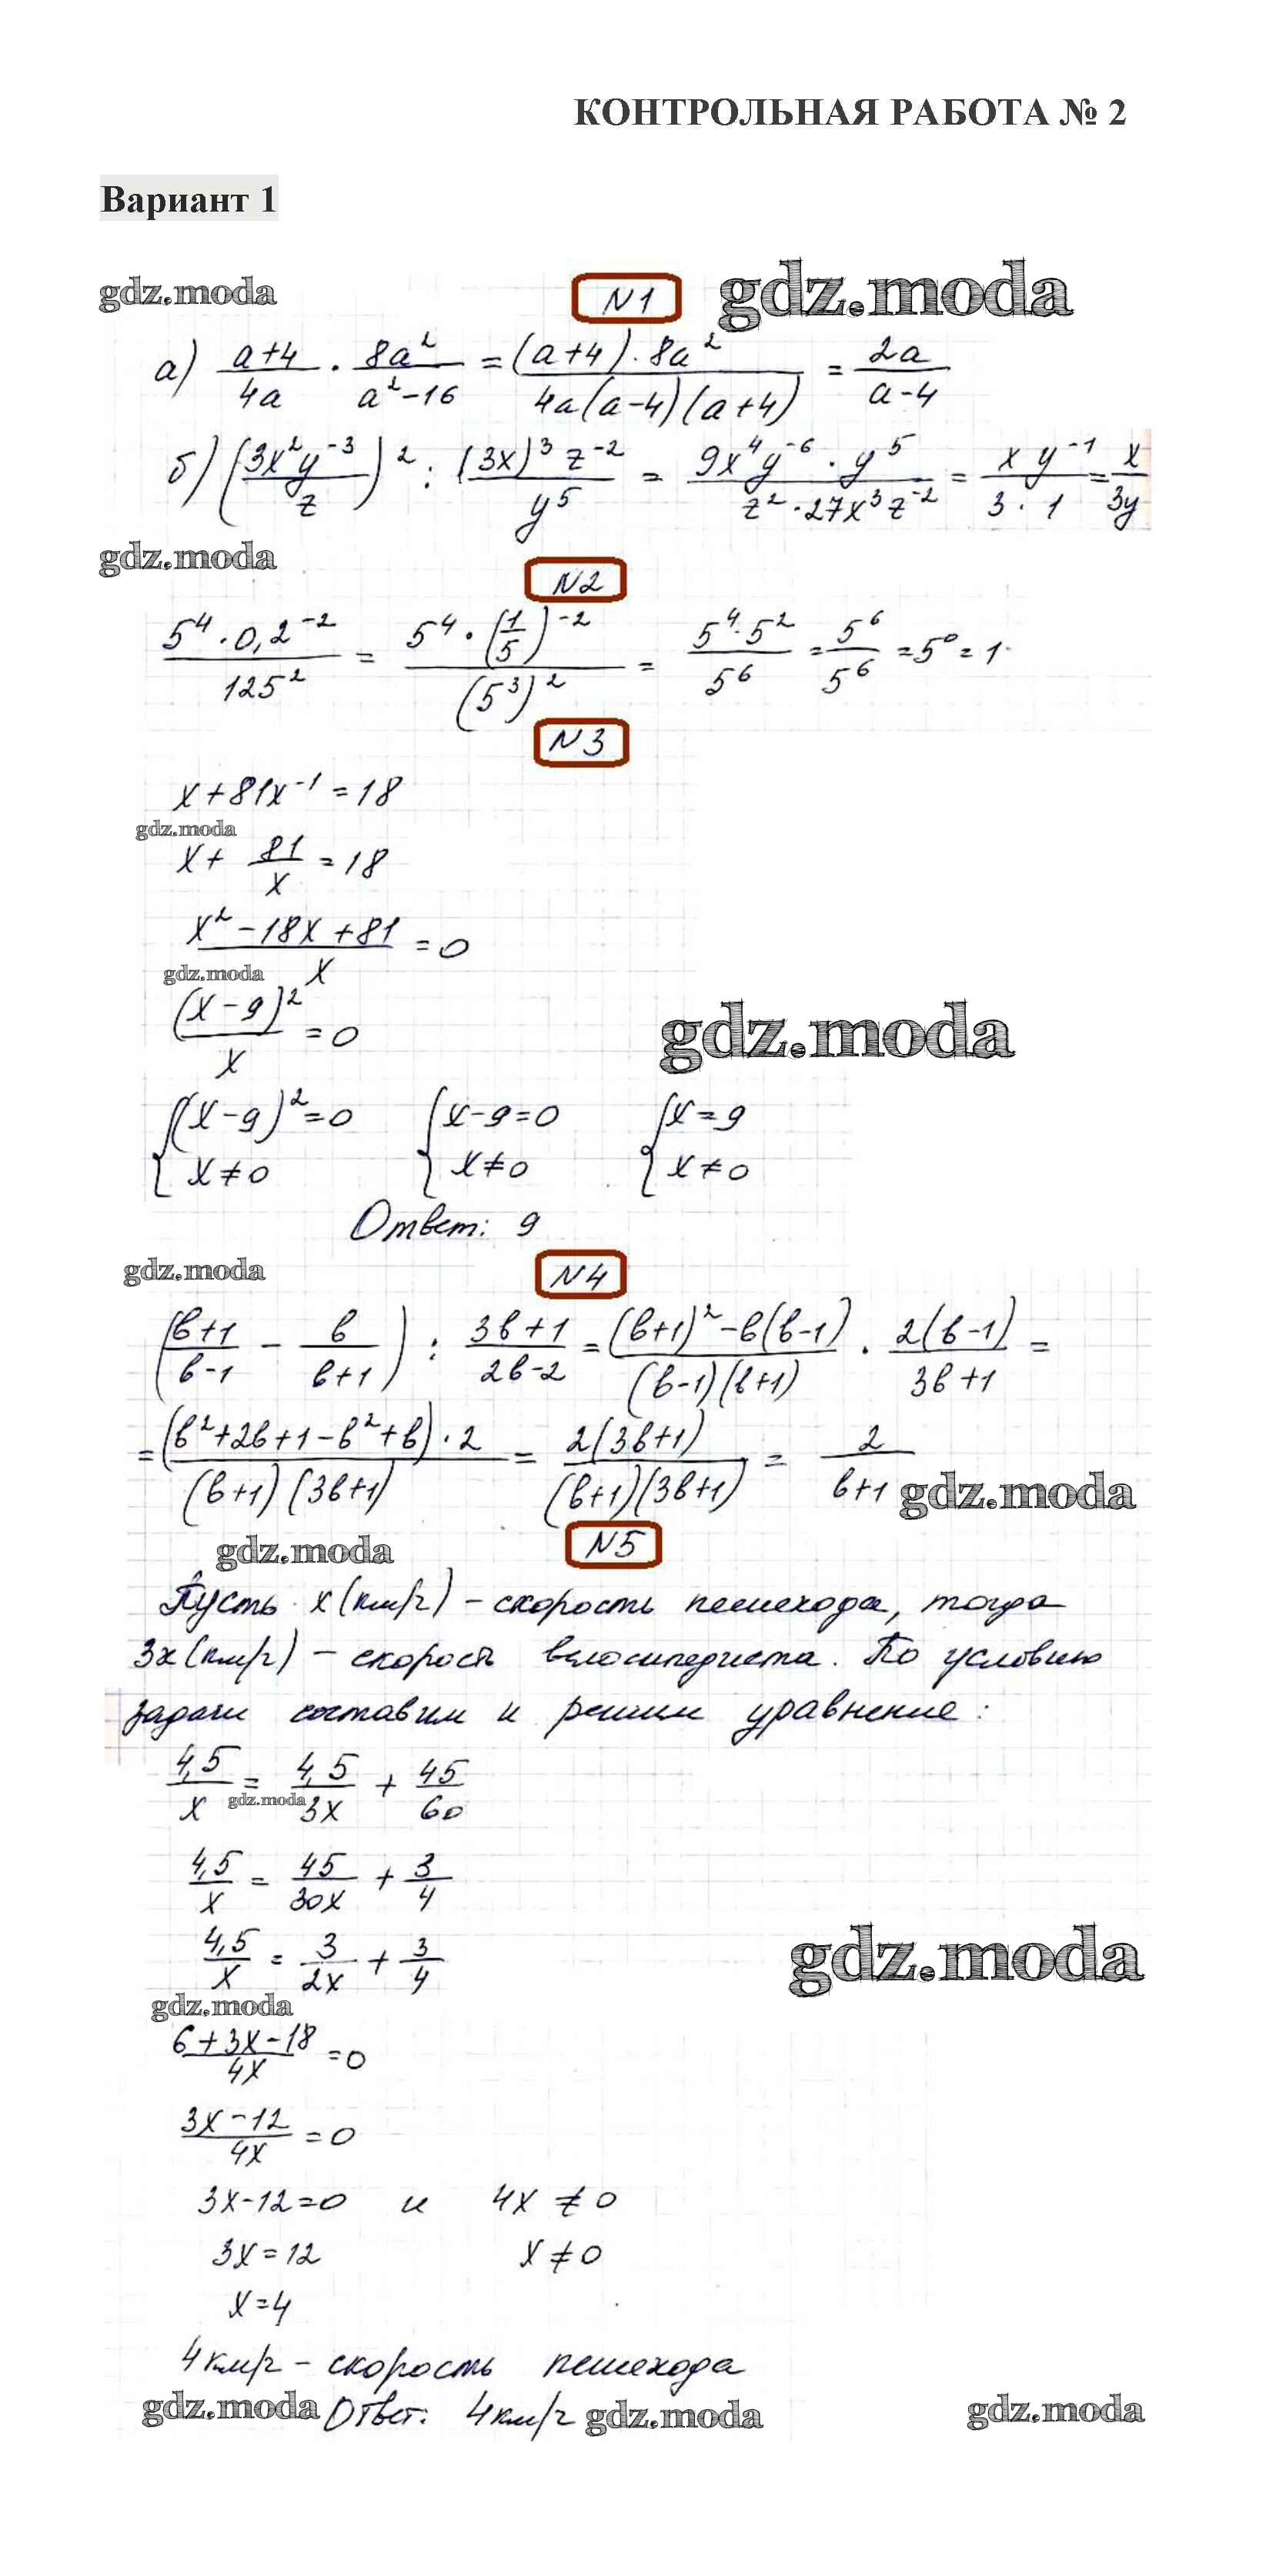 КОНТРОЛЬНАЯ РАБОТА № 2
Вариант 1
gdz.moda
N1
gdz.moda
а) (a+4)/(4a) · 8a²/(a²-16) = ((a+4)·8a²)/(4a(a-4)(a+4)) = 2a/(a-4)
б) (3x²y⁻³/z)² : ((3x)³z⁻²)/y⁵ = (9x⁴y⁻⁶·y⁵)/(z²·27x³z⁻²) = (xy⁻¹)/(3·1) = x/(3y)
gdz.moda
N2
(5⁴·0,2⁻²)/125² = (5⁴·(1/5)⁻²)/(5³)² = (5⁴·5²)/5⁶ = 5⁶/5⁶ = 5⁰ = 1
N3
x+81x⁻¹=18
gdz.moda
x+ 81/x = 18
(x²-18x+81)/x = 0
gdz.moda
(x-9)²/x = 0
gdz.moda
{(x-9)²=0 {x-9=0 {x=9
x≠0 x≠0 x≠0
Ответ: 9
gdz.moda
N4
((в+1)/(в-1) - в/(в+1)) : (3в+1)/(2в-2) = ((в+1)²-в(в-1))/((в-1)(в+1)) · 2(в-1)/(3в+1) =
= ((в²+2в+1-в²+в)·2)/((в+1)(3в+1)) = 2(3в+1)/((в+1)(3в+1)) = 2/(в+1)
gdz.moda
gdz.moda
N5
Пусть x(км/ч) - скорость пешехода, тогда
3x(км/ч) - скорость велосипедиста. По условию
задачи составим и решим уравнение:
4,5/x = 4,5/3x + 45/60
gdz.moda
4,5/x = 45/30x + 3/4
4,5/x = 3/2x + 3/4
gdz.moda
gdz.moda
(6+3x-18)/4x = 0
(3x-12)/4x = 0
3x-12=0 и 4x ≠ 0
3x=12 x≠0
x=4
4км/ч - скорость пешехода
gdz.moda Ответ: 4км/ч gdz.moda gdz.moda